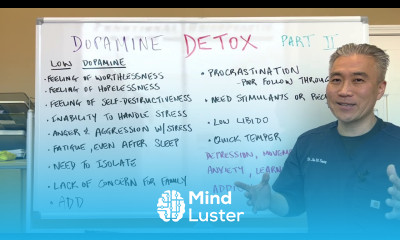 DOPAMINE DETOX PART II
LOW DOPAMINE
- FEELING OF WORTHLESSNESS
- FEELING OF HOPELESSNESS
- FEELING OF SELF-DESTRUCTIVENESS
- INABILITY TO HANDLE STRESS
- ANGER & AGGRESSION W/STRESS
- FATIGUE, EVEN AFTER SLEEP
- NEED TO ISOLATE
- LACK OF CONCERN FOR FAMILY
- ADD
• PROCRASTINATION
- POOR FOLLOW THROUGH
• NEED STIMULANTS OR
• LOW LIBIDO
• QUICK TEMPER
DEPRESSION,
ANXIETY,
Mind
Luster